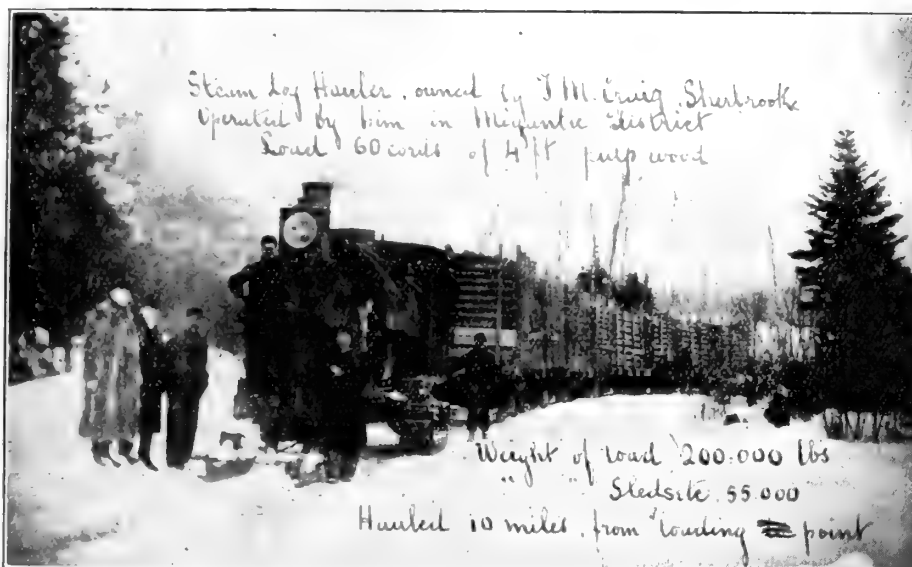 Steam Log Hauler, owned by J M. Craig, Sherbrooke
Operated by him in Megantic District
Load 60 cords of 4 ft pulp wood
Weight of load 200.000 lbs
" " Sleds etc. 55.000
Hauled 10 miles, from loading point